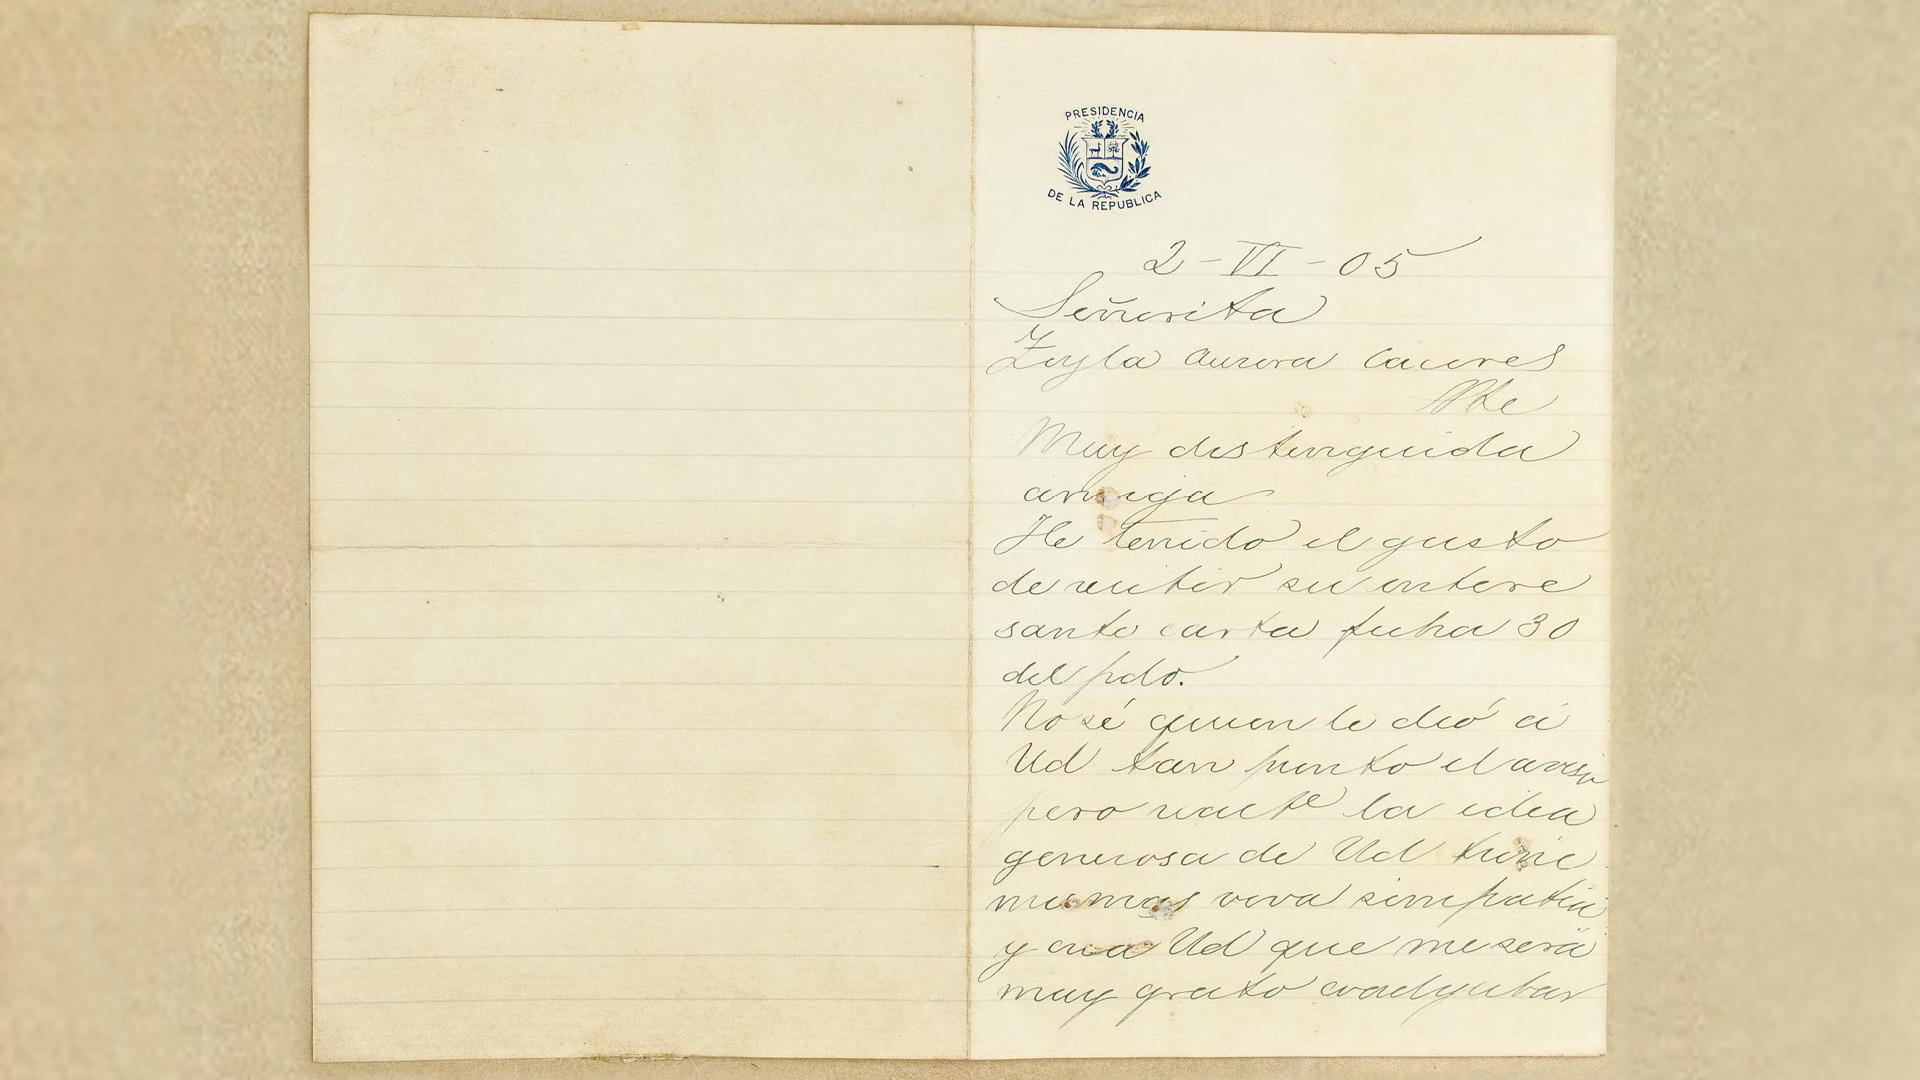 PRESIDENCIA
DE LA REPUBLICA
2-VI-05
Señorita
Zoyla Aurora Cáceres
Pte
Muy distinguida
amiga
He tenido el gusto
de recibir su intere
sante carta fecha 30
del pdo.
No sé quien le dió á
Ud tan pronto el aviso
pero la idea
generosa de Ud tiene
mis mas viva simpatia
y crea Ud que me será
muy grato coadyubar